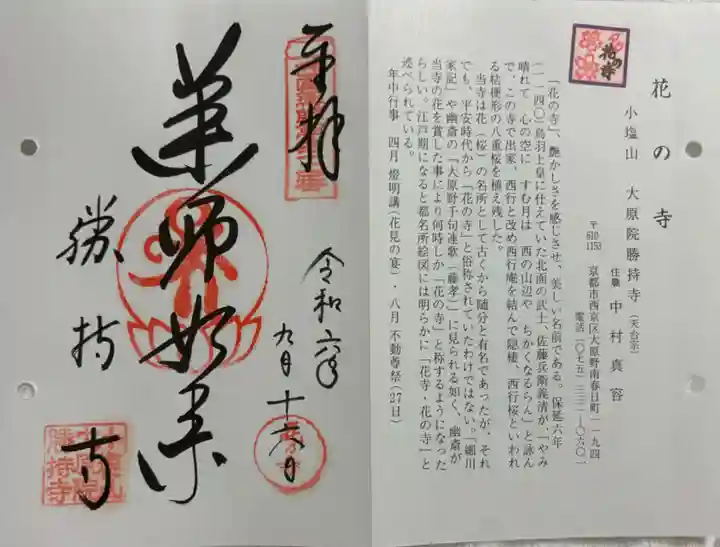 奉拝
薬師如来
勝持寺
令和六年
九月十六日
花の寺
花の寺
小塩山 大原院勝持寺(天台宗)
住職 中村真容
〒610-1153 京都市西京区大原野南春日町一一九四
電話(〇七五)三三一-〇六〇一
「花の寺」、艶かしさを感じさせ、美しい名前である。保延六年
(一一四〇)鳥羽上皇に仕えていた北面の武士、佐藤兵衛義清が、「やみ
晴れて 心の空に すむ月は 西の山辺や ちかくなるらん」と詠ん
で、この寺で出家、西行と改め西行庵を結んで隠棲、西行桜といわれ
る桔梗形の八重桜を植え残した。
当寺は花(桜)の名所として古くから随分と有名であったが、それ
でも、平安時代から「花の寺」と俗称されていたわけではない。「細川
家記」や幽斎の「大原野千句連歌(藤孝)」に見られる如く、幽斎が
当寺の花を賞した事により何時しか「花の寺」と称するようになった
らしい。江戸期になると都名所絵図には明らかに「花寺・花の寺」と
述べられている。
年中行事 四月 燈明講(花見の宴)・八月 不動尊祭(27日)